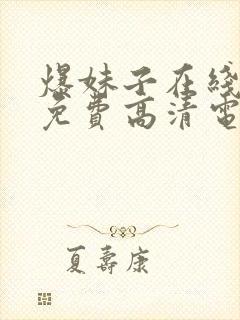 爆妹子在线
免费高清电
夏寿康